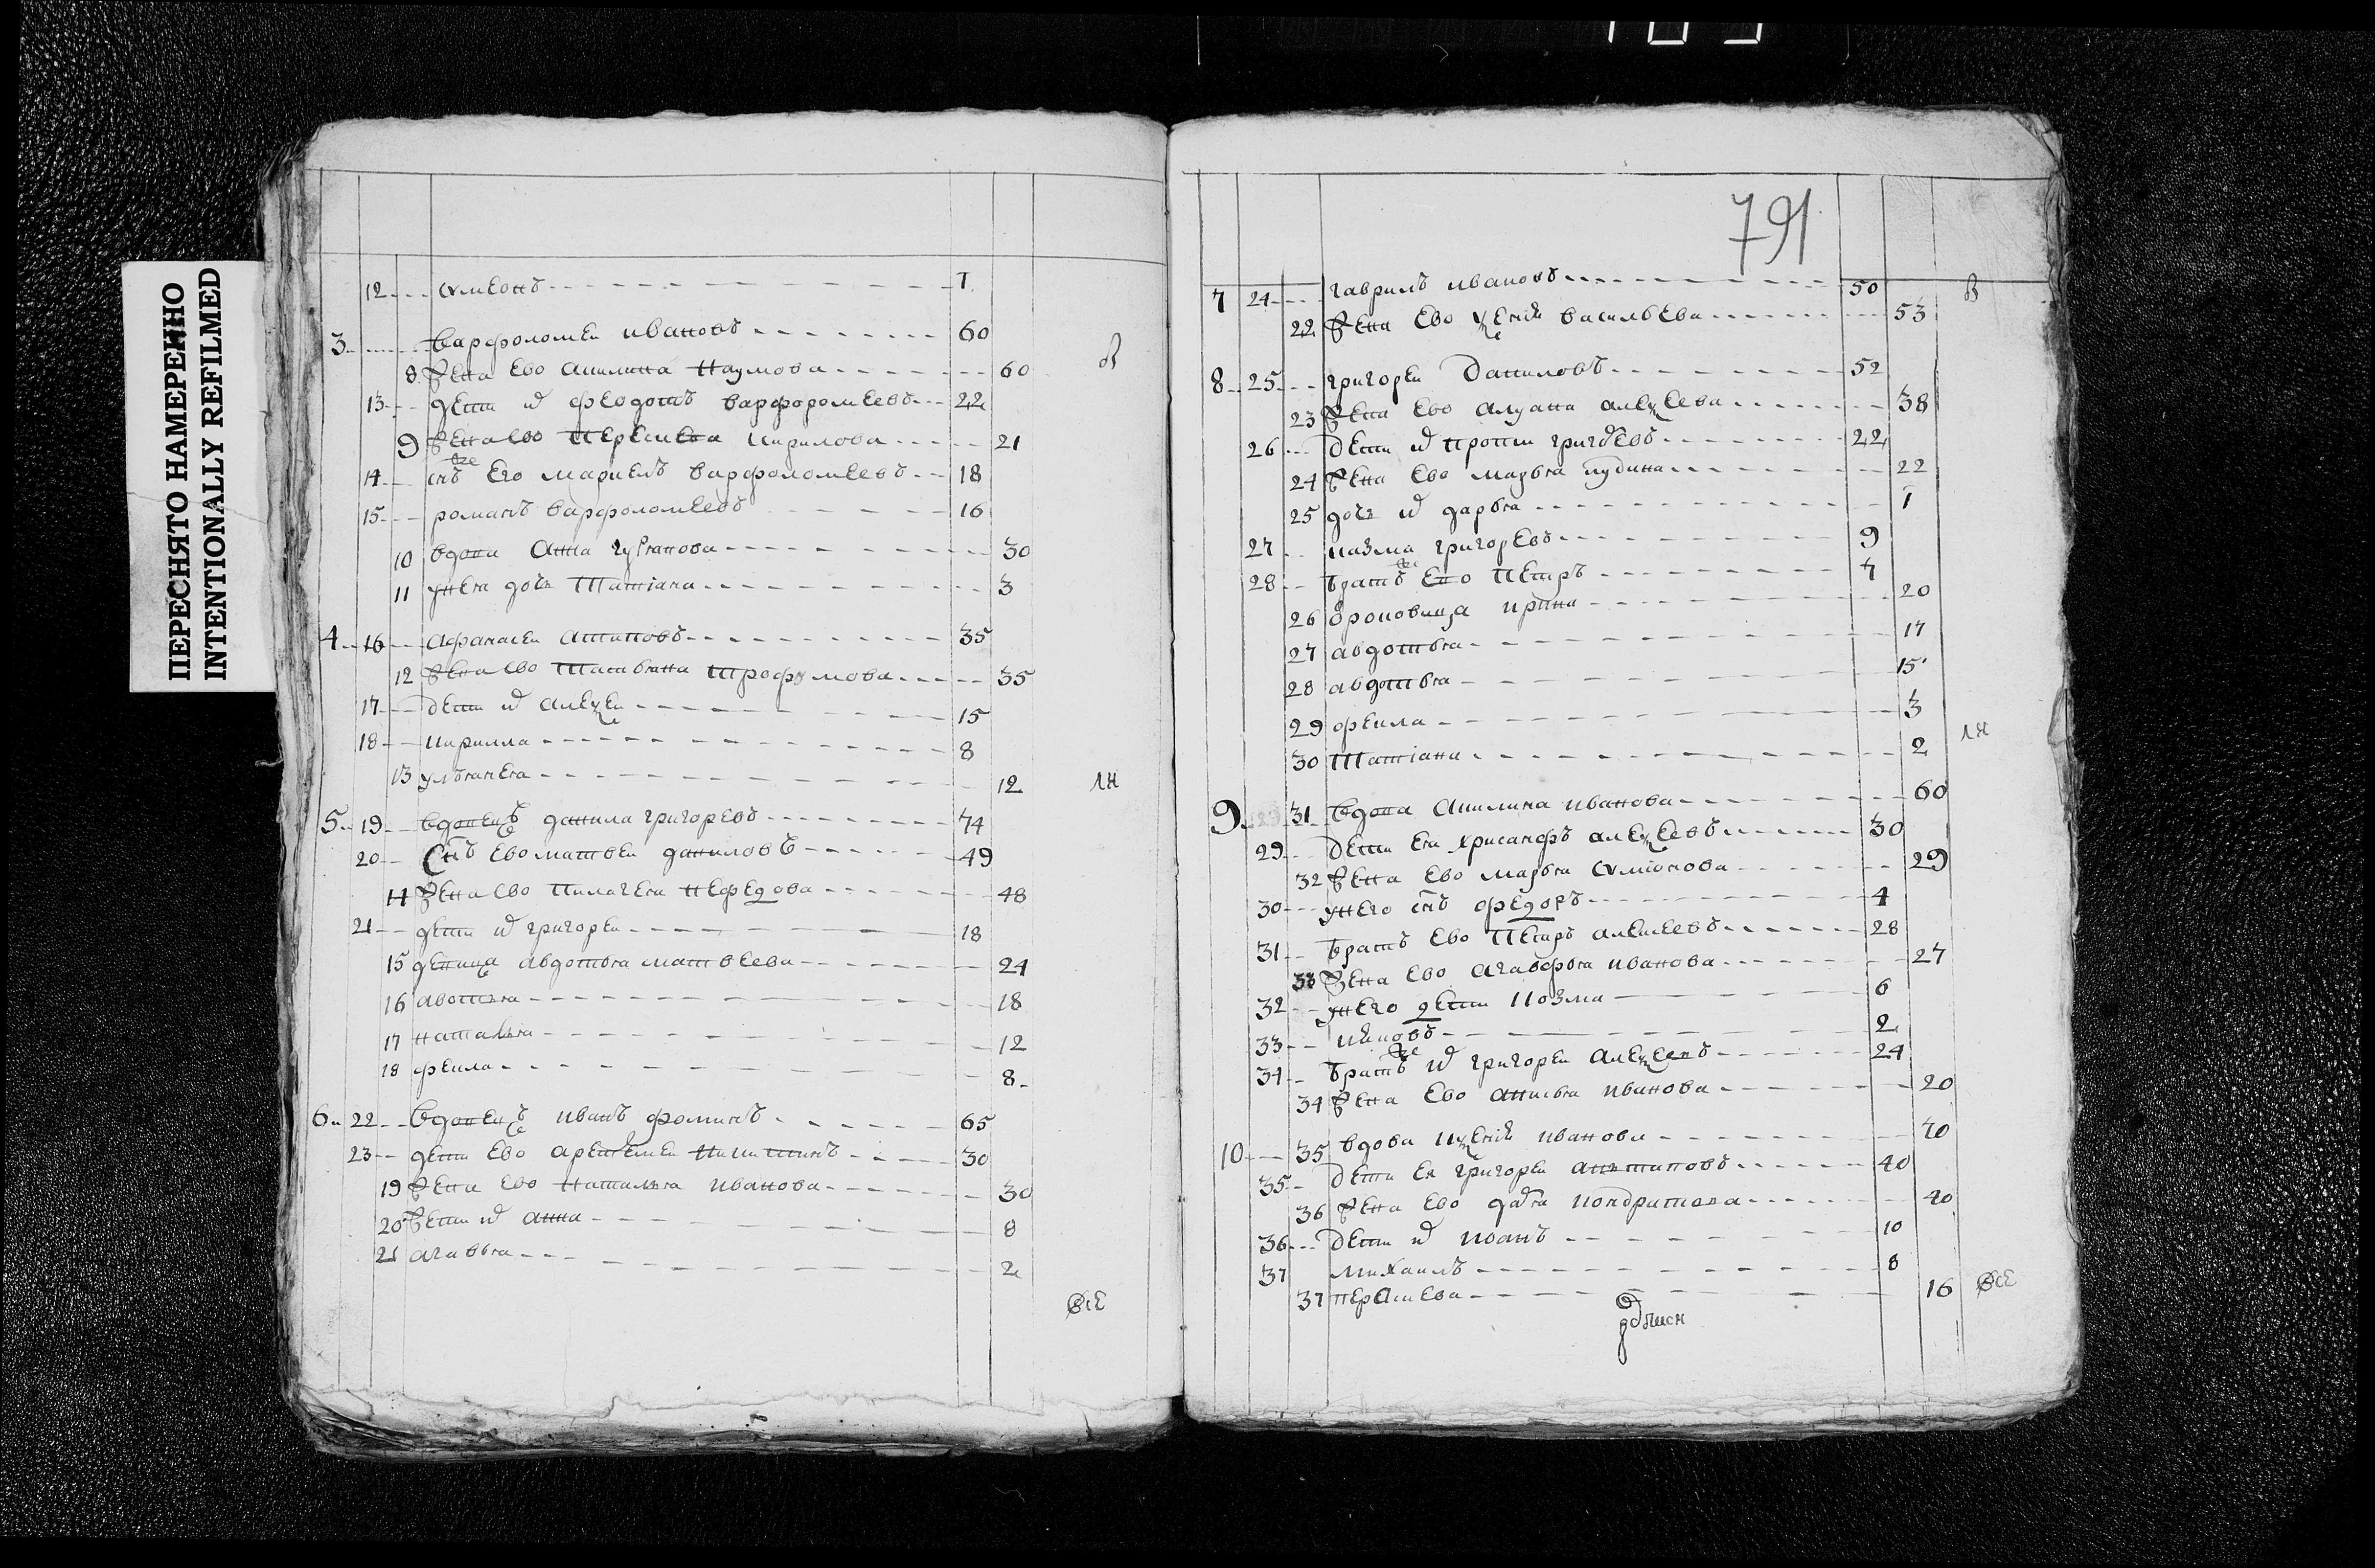 ПЕРЕСНЯТО НАМЕРЕННО
INTENTIONALLY REFILMED
12 сѵмеонъ 1
3 варфоломеи ивановъ 60
8 жена ево акилина наумова 60
13 дети их феодотъ варфоромеевъ 22
9 жена ево пераскева кирилова 21
14 снъ его же варфоломеевъ 18
15 романъ варфоломеевъ 16
10 вдова анна 30
11 унея дочь татіана 3
4 16 афанасеи антиповъ 35
12 жена ево татьяна трофимова 35
17 дети их алеѯеи 15
18 кирилла 8
13 ульянея 12
лн
5 19 вдовецъ данила григоревъ 74
20 снъ ево матвеи даниловъ 49
14 жена ево пилагея нефедова 48
21 дети их григореи 18
15 девица авдотья матвеева 24
16 авотья 18
17 наталья 12
18 фекла 8
6 22 вдовецъ иванъ фоминъ 65
23 дети ево 30
19 жена ево наталья иванова 30
20 дети их анна 8
21 агавья 2
все
791
7 24 гаврилъ ивановъ 50
22 жена ево васильева 53
8 25 григореи даниловъ 52
23 жена ево алеѯеева 38
26 дети их 22
24 жена ево марья 22
25 дочь их дарья 1
27 казма григоревъ 9
28 братъ же ево петръ 7
26 ирина 20
27 авдотья 17
28 авдотья 15
29 фекла 3
30 татіана 2
лн
9 31 вдова акилина иванова 60
29 дети ея хрисанфъ алеѯеевъ 30
32 жена ево марья сѵміонова 29
30 унего снъ федоръ 4
31 братъ ево петръ алексеевъ 28
33 жена ево агафья иванова 27
32 унего дети козма 6
33 2
34 братъ же их григореи алеѯеевъ 24
34 жена ево анисья иванова 20
10 35 вдова иванова 70
35 дети ея григореи анътиповъ 40
36 жена ево кондратова 40
36 дети их иванъ 10
37 михаилъ 8
37 пераскева 16
все